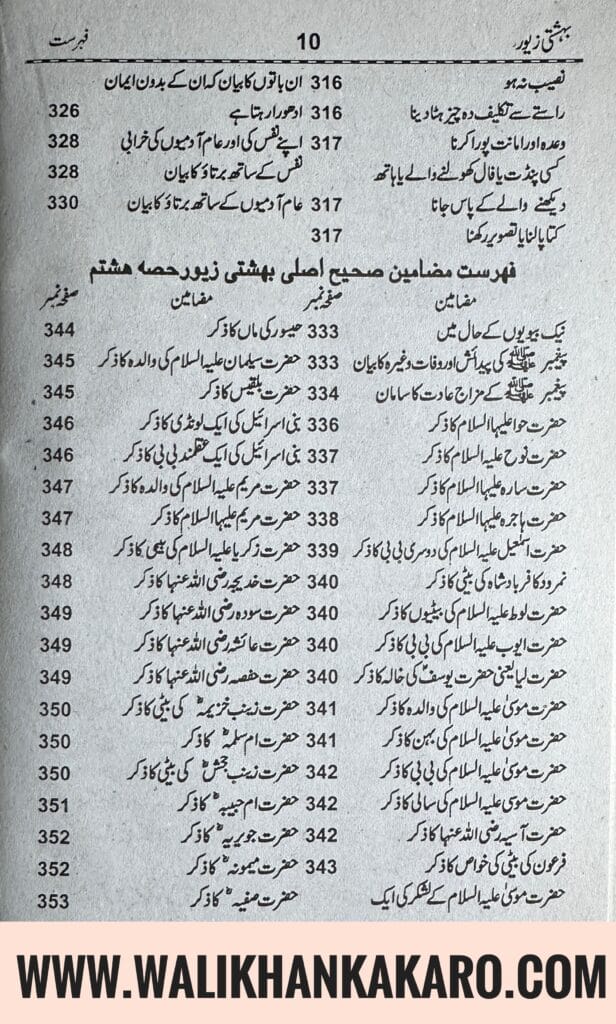 بہشتی زیور 10 فہرست
نصیب نہ ہو 316
راستے سے تکلیف دہ چیز ہٹا دینا 316
وعدہ اور امانت پورا کرنا 317
کسی پنڈت یا فال کھولنے والے یا ہاتھ
دیکھنے والے کے پاس جانا 317
کتا پالنا یا تصویر رکھنا 317
ان باتوں کا بیان کہ ان کے بدون ایمان
ادھورا رہتا ہے 326
اپنے نفس کی اور عام آدمیوں کی خرابی 328
نفس کے ساتھ برتاؤ کا بیان 328
عام آدمیوں کے ساتھ برتاؤ کا بیان 330
فہرست مضامین صحیح اصلی بہشتی زیور حصہ ہشتم
مضامین صفحہ نمبر
نیک بیویوں کے حال میں 333
پیغمبر ﷺ کی پیدائش اور وفات وغیرہ کا بیان 333
پیغمبر ﷺ کے مزاج عادت کا سامان 334
حضرت حوا علیہا السلام کا ذکر 336
حضرت نوح علیہ السلام کا ذکر 337
حضرت سارہ علیہا السلام کا ذکر 337
حضرت ہاجرہ علیہا السلام کا ذکر 338
حضرت اسمٰعیل علیہ السلام کی دوسری بی بی کا ذکر 339
نمرود کافر بادشاہ کی بیٹی کا ذکر 340
حضرت لوط علیہ السلام کی بیٹیوں کا ذکر 340
حضرت ایوب علیہ السلام کی بی بی کا ذکر 340
حضرت لیا یعنی حضرت یوسفؑ کی خالہ کا ذکر 340
حضرت موسیٰ علیہ السلام کی والدہ کا ذکر 341
حضرت موسیٰ علیہ السلام کی بہن کا ذکر 341
حضرت موسیٰ علیہ السلام کی بی بی کا ذکر 342
حضرت موسیٰ علیہ السلام کی سالی کا ذکر 342
حضرت آسیہ رضی اللہ عنہا کا ذکر 342
فرعون کی بیٹی کی خواص کا ذکر 343
حضرت موسیٰ علیہ السلام کے لشکر کی ایک
مضامین صفحہ نمبر
حیسور کی ماں کا ذکر 344
حضرت سلیمان علیہ السلام کی والدہ کا ذکر 345
حضرت بلقیس کا ذکر 345
بنی اسرائیل کی ایک لونڈی کا ذکر 346
بنی اسرائیل کی ایک عقلمند بی بی کا ذکر 346
حضرت مریم علیہ السلام کی والدہ کا ذکر 347
حضرت مریم علیہا السلام کا ذکر 347
حضرت زکریا علیہ السلام کی بیبی کا ذکر 348
حضرت خدیجہ رضی اللہ عنہا کا ذکر 348
حضرت سودہ رضی اللہ عنہا کا ذکر 349
حضرت عائشہ رضی اللہ عنہا کا ذکر 349
حضرت حفصہ رضی اللہ عنہا کا ذکر 349
حضرت زینب خزیمہؓ کی بیٹی کا ذکر 350
حضرت ام سلمہؓ کا ذکر 350
حضرت زینب جحشؓ کی بیٹی کا ذکر 350
حضرت ام حبیبہؓ کا ذکر 351
حضرت جویریہؓ کا ذکر 352
حضرت میمونہؓ کا ذکر 352
حضرت صفیہؓ کا ذکر 353
WWW.WALIKHANKAKARO.COM